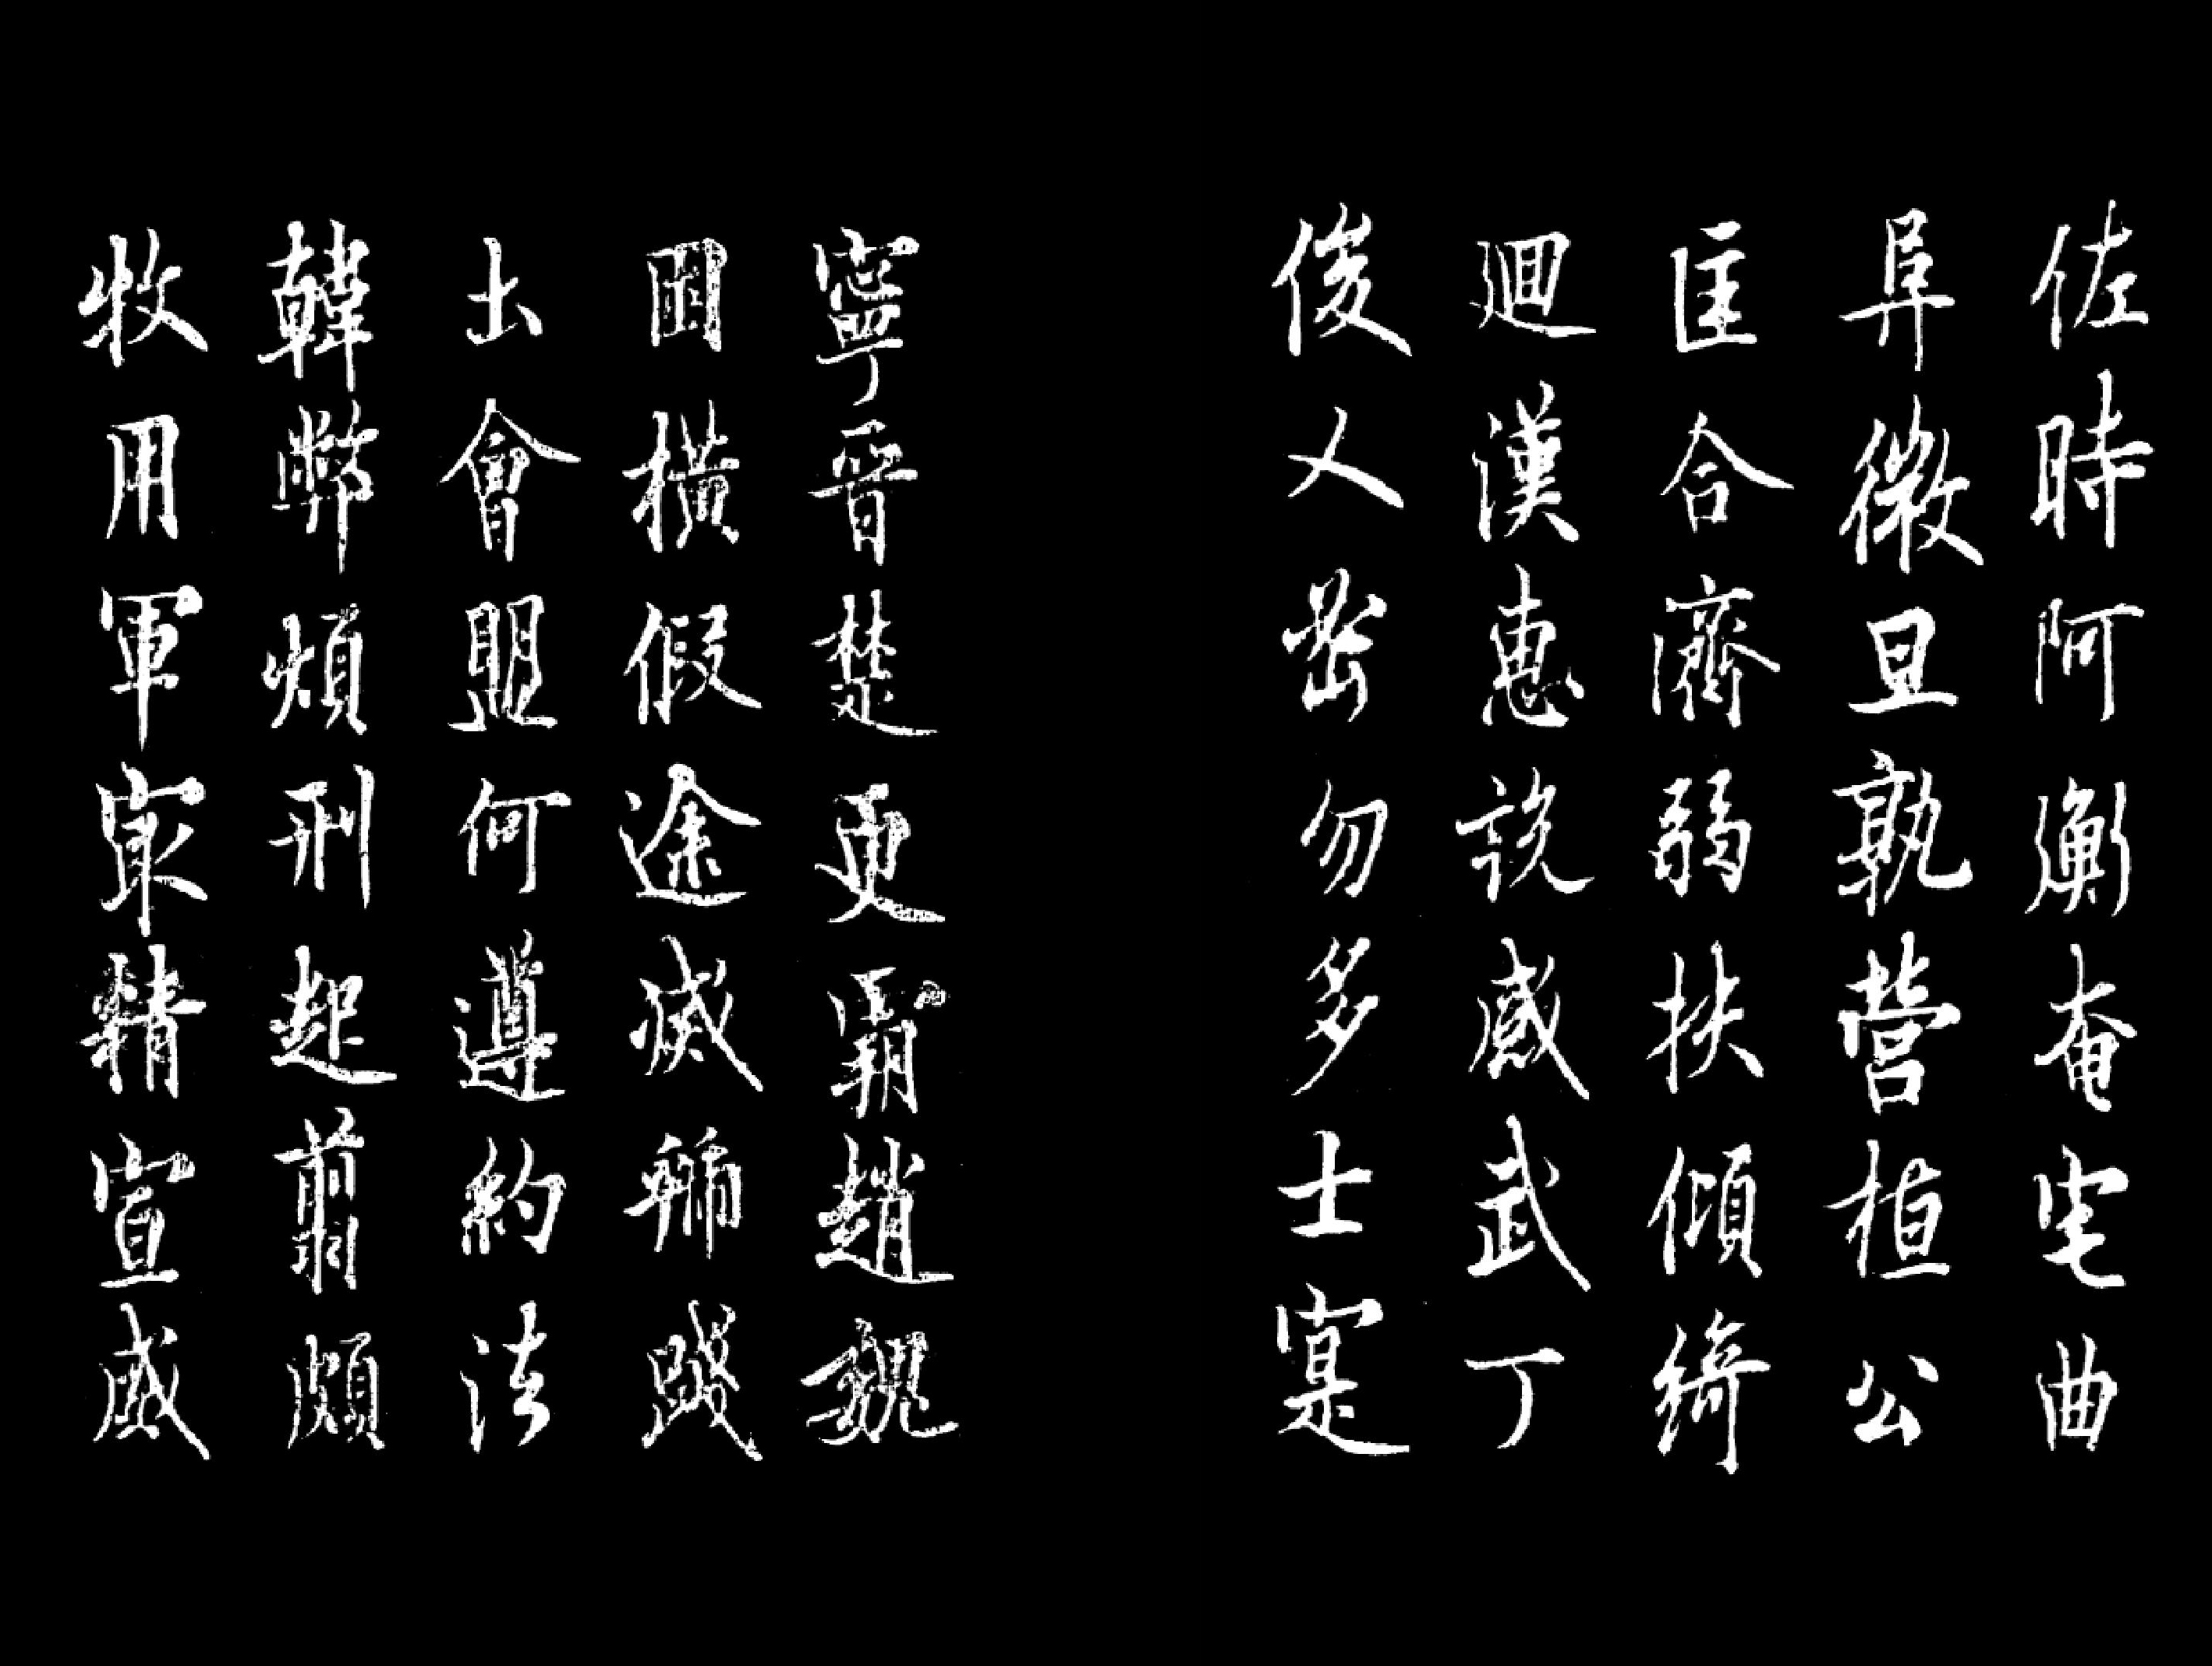 佐時阿衡奄宅曲
阜微旦孰營桓公
匡合濟弱扶傾綺
迴漢惠說感武丁
俊乂密勿多士寔
寧晉楚更霸趙魏
困橫假途滅虢踐
土會盟何遵約法
韓弊煩刑起翦頗
牧用軍最精宣威